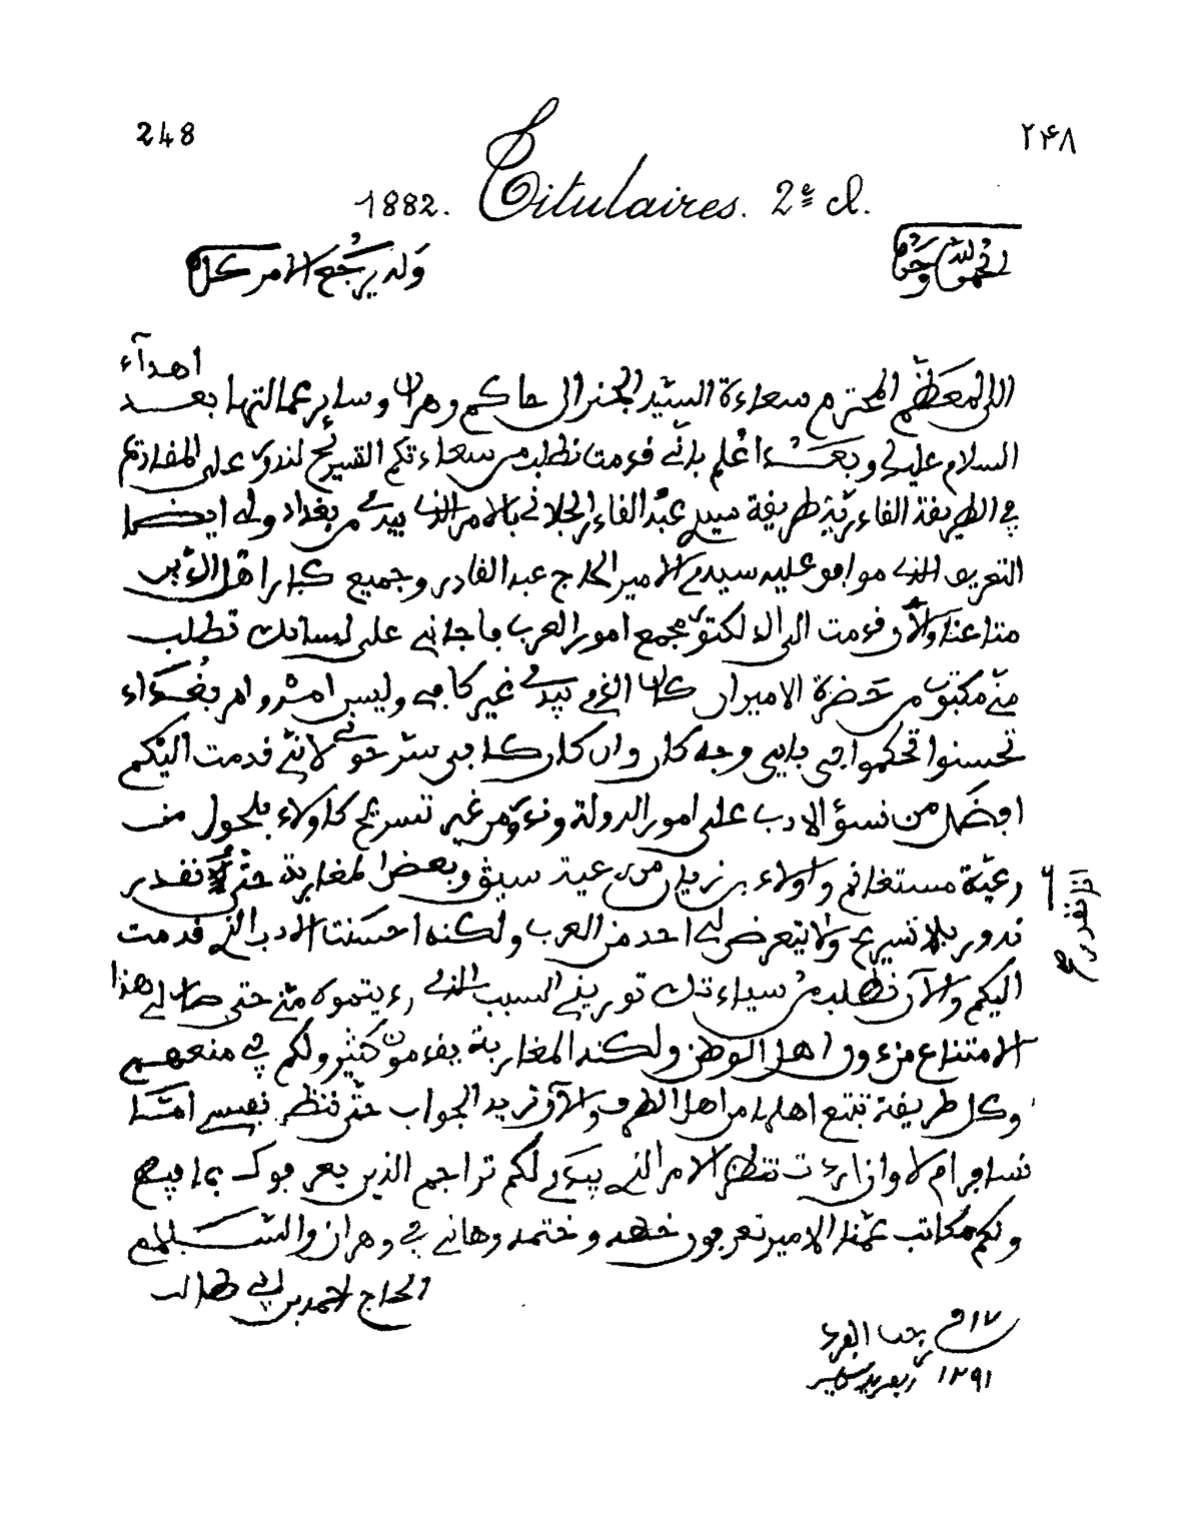 248 ۲۴۸
1882. Titulaires. 2e cl.
الحمد لله وحده وله يرجع الامر كله
الى المعظم المحترم سعادة السيد الجنرال حاكم وهران وساير عمالتها بعد اهدآء
السلام عليك وبعد اعلم باني قدمت نطلب من سعادتكم التسريح لندور على المقاديم
في الطريقة القادرية طريقة سيدي عبد القادر الجلاني بالامر الذي بيدي من بغداد ولي ايضا
التعريف الذي موافق عليه سيدي الامير الحاج عبد القادر وجميع كبار اهل الدين
متاعنا والآن قدمت الى الدكتور مجمع امور العرب فاجابني على لسانك تطلب
مني مكتوب من حضرة الامير ان كان الذي بيدي غير كافي وليس امر وامر بغداد
تحسنوا تحكموا في بايي وجه كان وان كان كافي سرحوني لاني قدمت اليكم
افضل من نسؤ الادب على امور الدولة وندور من غير تسريح كاولاد بلحول من
رعية مستغانم واولاد بن زيان من رعية سيق وبعض المغاربة حتى نقدر
ندور بلا تسريح ولا يتعرض لي احد من العرب ولكنه احسنت الادب الذي قدمت
اليكم والآن نطلب من سيادتك توريني السبب الذي ريتموه مني حتى صار لي هذا
الامتناع من دون اهل الوطن ولكنه المغاربة يقدمون كثير ولكم في منعهم
وكل طريقة تبتع اهلها من اهل الطرف والآن نريد الجواب حتى ننظر نفسي امتا
نسافر ام لا وان اردت تنظر الامر الذي بيدي لكم تراجم الذين يعرفوك بما فيه
ولكم مكاتب عمنا الامير تعرفون خطه وختمه وهاني في وهران والسلام
الحاج احمد بن ابي طالب
١٧ في رجب الفرد
١٢٩١